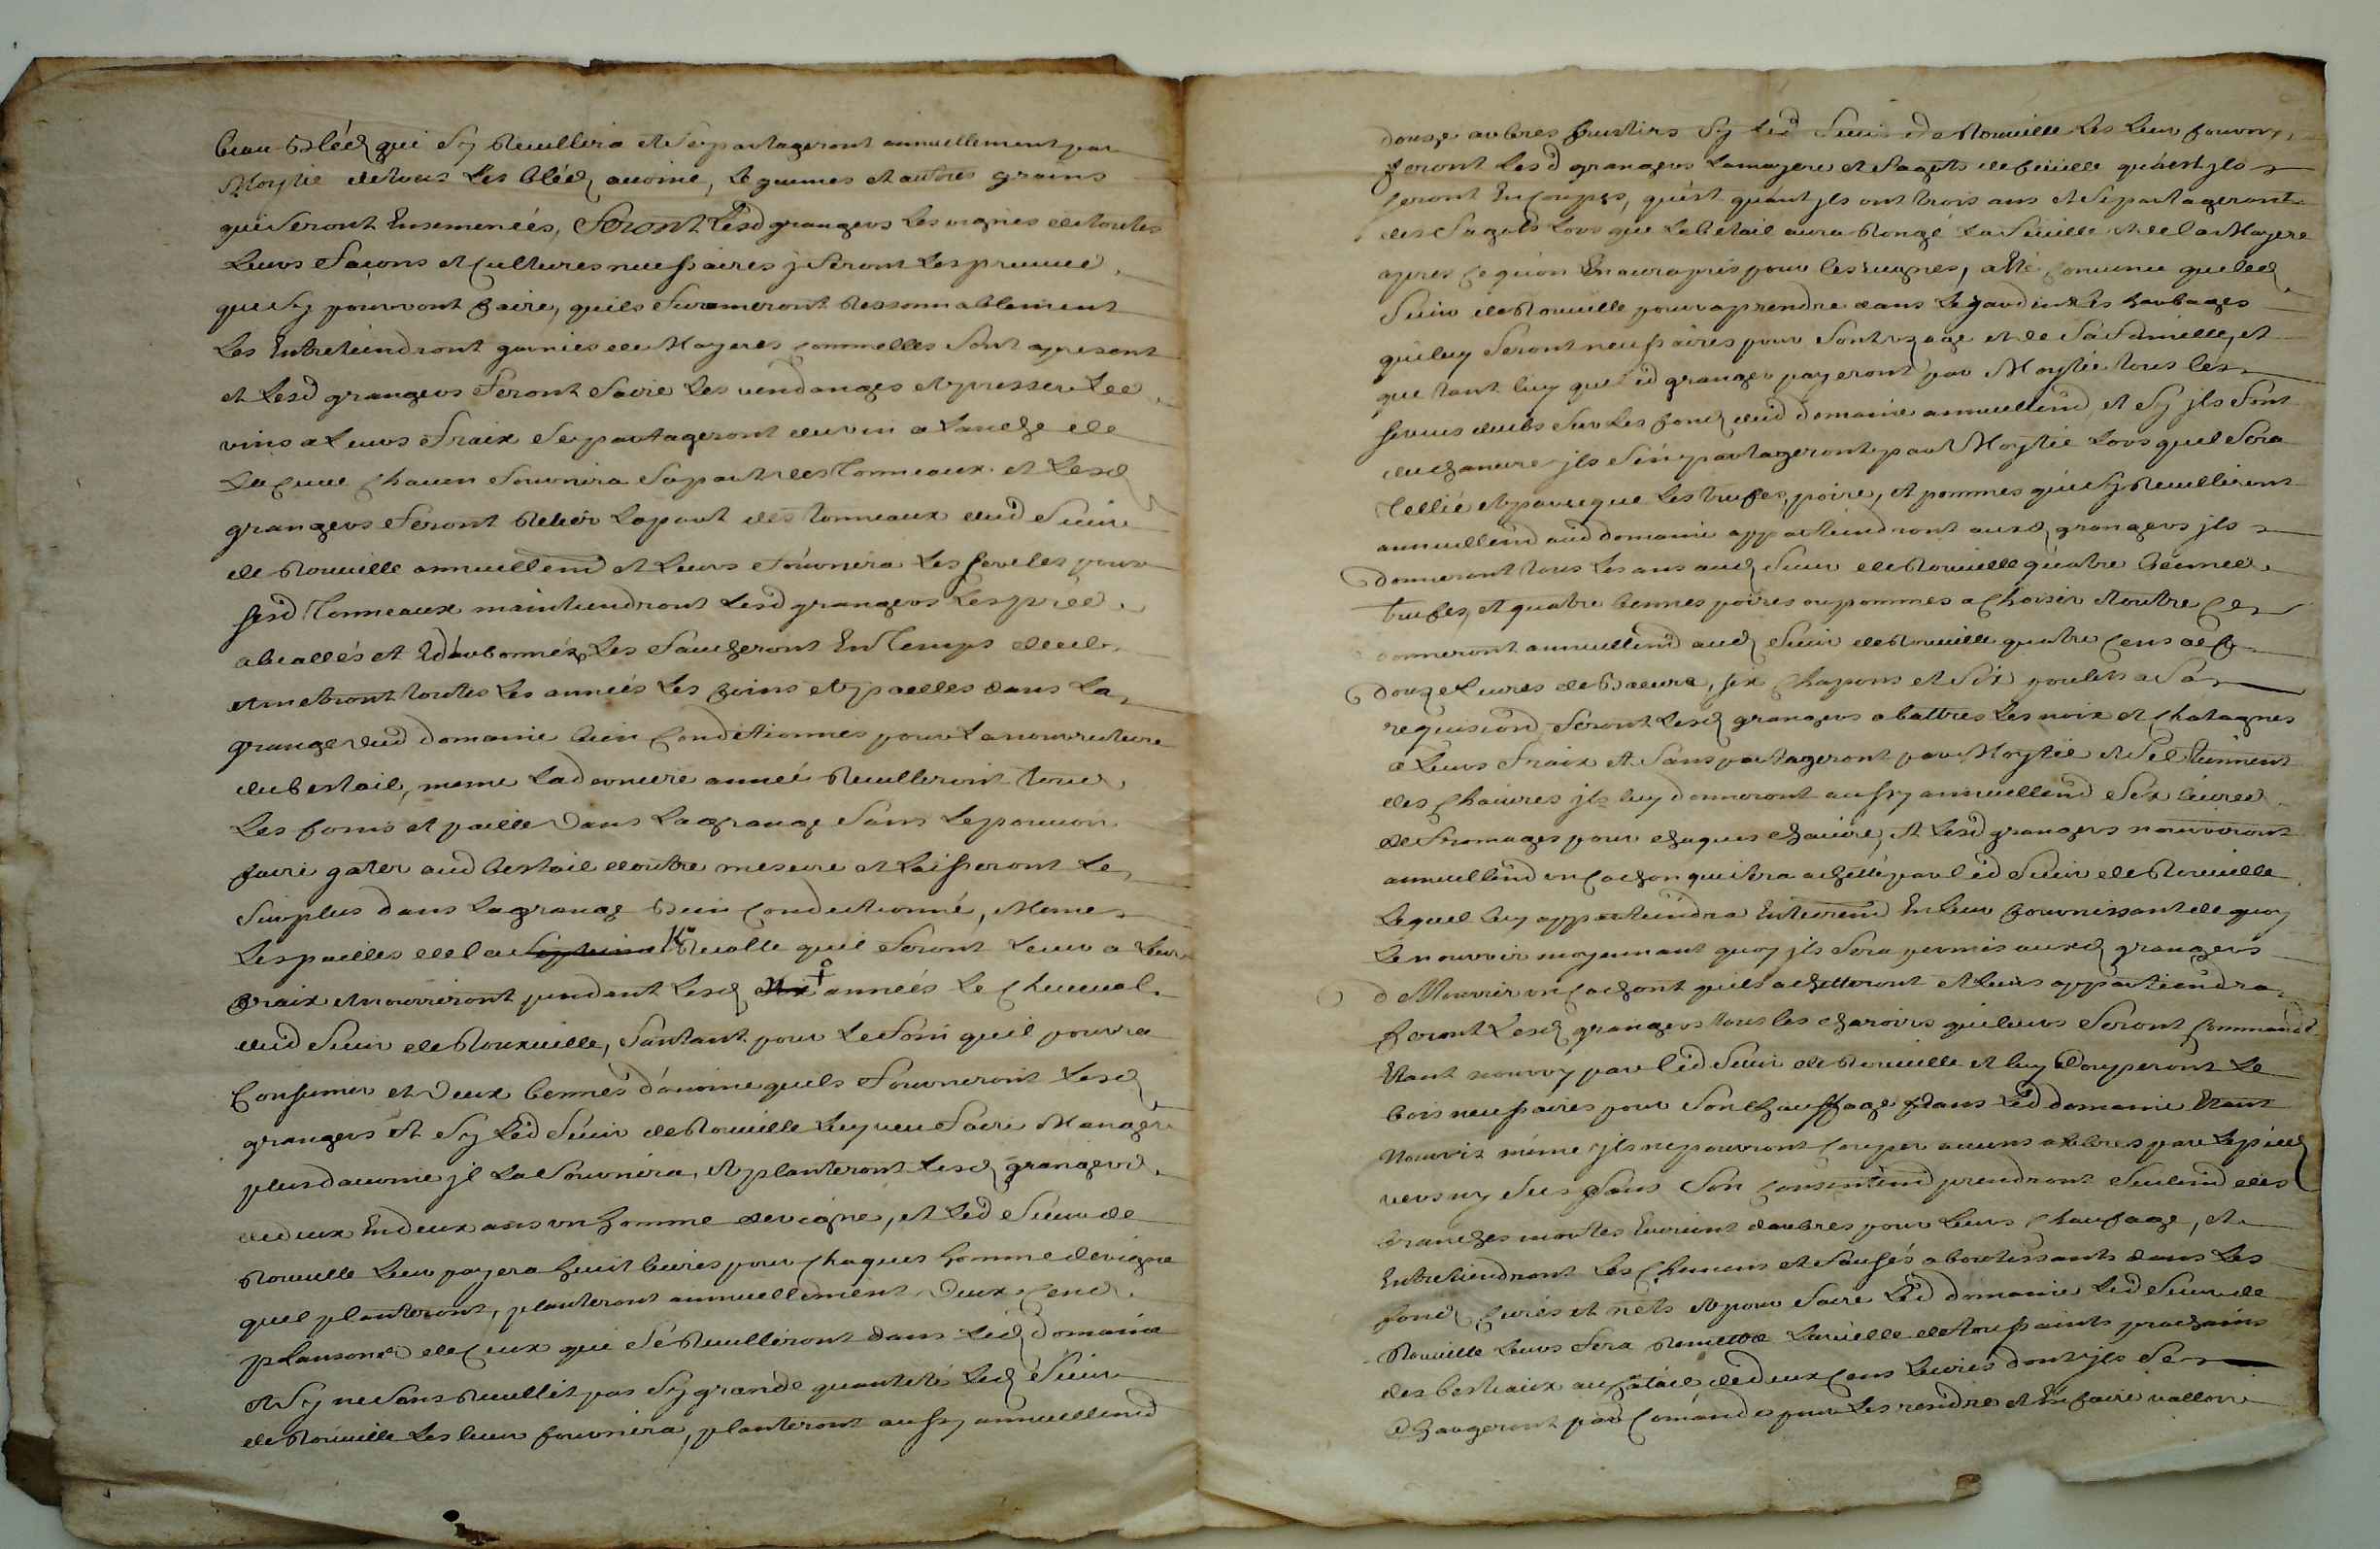 beau bléd qui sy Reuillira et se partageront annuellement par
Moytié de tous les bléd, avoine, legumes et autres grains
qui seront Ensemencés, feront lesd grangers les vignes de toutes
leurs façons et cultures necessaires, feront les preuued
que sy pourront faire, quils fumeront Ressonnablement
les Entretiendront garnies de Mayeres commelles sont appresent
et lesd grangers feront faire les vendanges et presser les
vins a leurs fraix se partageront du vin a lanche de
la cuue chacun fournira sa part des Tonneaux et lesd
grangers feront Relier la part des tonneaux dud sieur
de Rouuille annuellemd et leurs fournira les sercles pour
sesd Tonneaux maintiendront lesd grangers les pred
abeallés et les faucheront En Temps deub
et metront toutes les années les foins et pailles dans la
grange dud domaine bien conditionnés pour la nourriture
du bestail, meme la derniere année Reuilleront tous
les foins et paille dans la grange sans le pouuoir
faire gater aud bestail doutre mesure et laisseront le
surplus dans la grange bien conditionné, Meme
les pailles de la Reuolte quil feront leuer a leur
fraix et nourriront pendant lesd années le cheuual
dud sieur de Rouuille, santant pour le foin quil pourra
Consumer et deux bennes d'auoine quils fourneront lesd
grangers Et sy led sieur de Rouuille luy veu faire Manger
plus dauoine il la fournira, et planteront lesd grangers
de deux En deux ans un homme de vigne, et led sieur de
Rouuille leur payera huit liures pour chaques homme de vigne
quel planteront, planteront annuellement deux cend
plansons de ceux qui se Reuilleront dans led domaine
et sy ne sans Reuillit pas sy grande quantité led sieur
de Rouuille les leur fournira, planteront aussy annuellemd
douze arbres fruitiers sy led sieur de Rouuille les leur fourny,
feront lesd grangers la mayere et fagots de feuille quant ils
seront En coupes, quest quant ils ont trois ans et se partageront
des fagots lors que le bétail aura Rongé la feuille et de la Mayere
apres ce quon En aura pris pour les vignes, a été conuenu que led
sieur de Rouuille pourra prendre dans le jardin les harbages
qui luy seront necessaires pour son usage et de sa famille, et
que tant luy que led granger payeront par Moytié tous les
seruis deubs sur les fond dud domaine annuellemd, et sy ils font
du chanure ils s'en partageront par Moytié lors quel sera
Tellié et parce que les trufes, poire, et pommes qui sy Reuilliront
annuellemd aud domaine appartiendront auxd grangers ils
donneront tous les ans aud sieur de Rouuille quatre bennes
trufes, et quatre bennes poires ou pommes a choisir et outre ce
donneront annuellemd aud sieur de Rouuille quatre cens
douze liures de Baeure, six chapons et six poulets a sa
requisiond feront lesd grangers abattres les noix et chatagnes
a leurs fraix et sans partageront par Moytié et sil tiennent
des chaiures ils luy donneront aussy annuellemd six liures
de fromages pour chaques chaiure, et lesd grangers nourriront
annuellemd un cochon qui sera achetté par led sieur de Rouuille
lequel luy appartiendra Entieremd En leur fournissant de quoy
le nourrir moyennant quoy ils sera permis auxd grangers
de Nourrir un cochont quils achetteront et leurs appartiendra
feront lesd grangers tous les charoirs qui leurs seront Commandé
Etant nourry par led sieur de Rouuille et luy Couperont le
bois necessaires pour son chauffage dans led domaine Etant
Nourris même ils ne pourront couper aucuns arbres par le pied
vers ny secs sans son consentemd prendront seulemd des
branches mortes dautres pour leurs chaufage, et
Entretiendront les chemins et faussés aboutissants dans les
fond curés et nets et pour faire led domaine led sieur de
Rouuille leurs sera Remettre la veille de Toussaints prochains
des bestiaux au de deux cens liures dont ils se
chargeront par Comande pour les rendre et En faire valloir